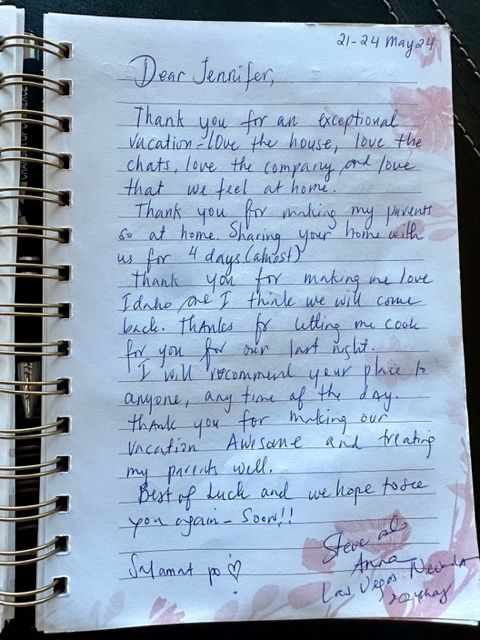 21-24 May 24
Dear Jennifer,
Thank you for an exceptional
vacation - love the house, love the
chats, love the company, and love
that we feel at home.
Thank you for making my parents
so at home. Sharing your home with
us for 4 days (almost)
Thank you for making me love
Idaho, and I think we will come
back. Thanks for letting me cook
for you for our last night.
I will recommend your place to
anyone, any time of the day.
Thank you for making our
vacation Awesome and treating
my parents well.
Best of Luck and we hope to see
you again - Soon!!
Salamat po
Steve
Anna
Las Vegas Nevada